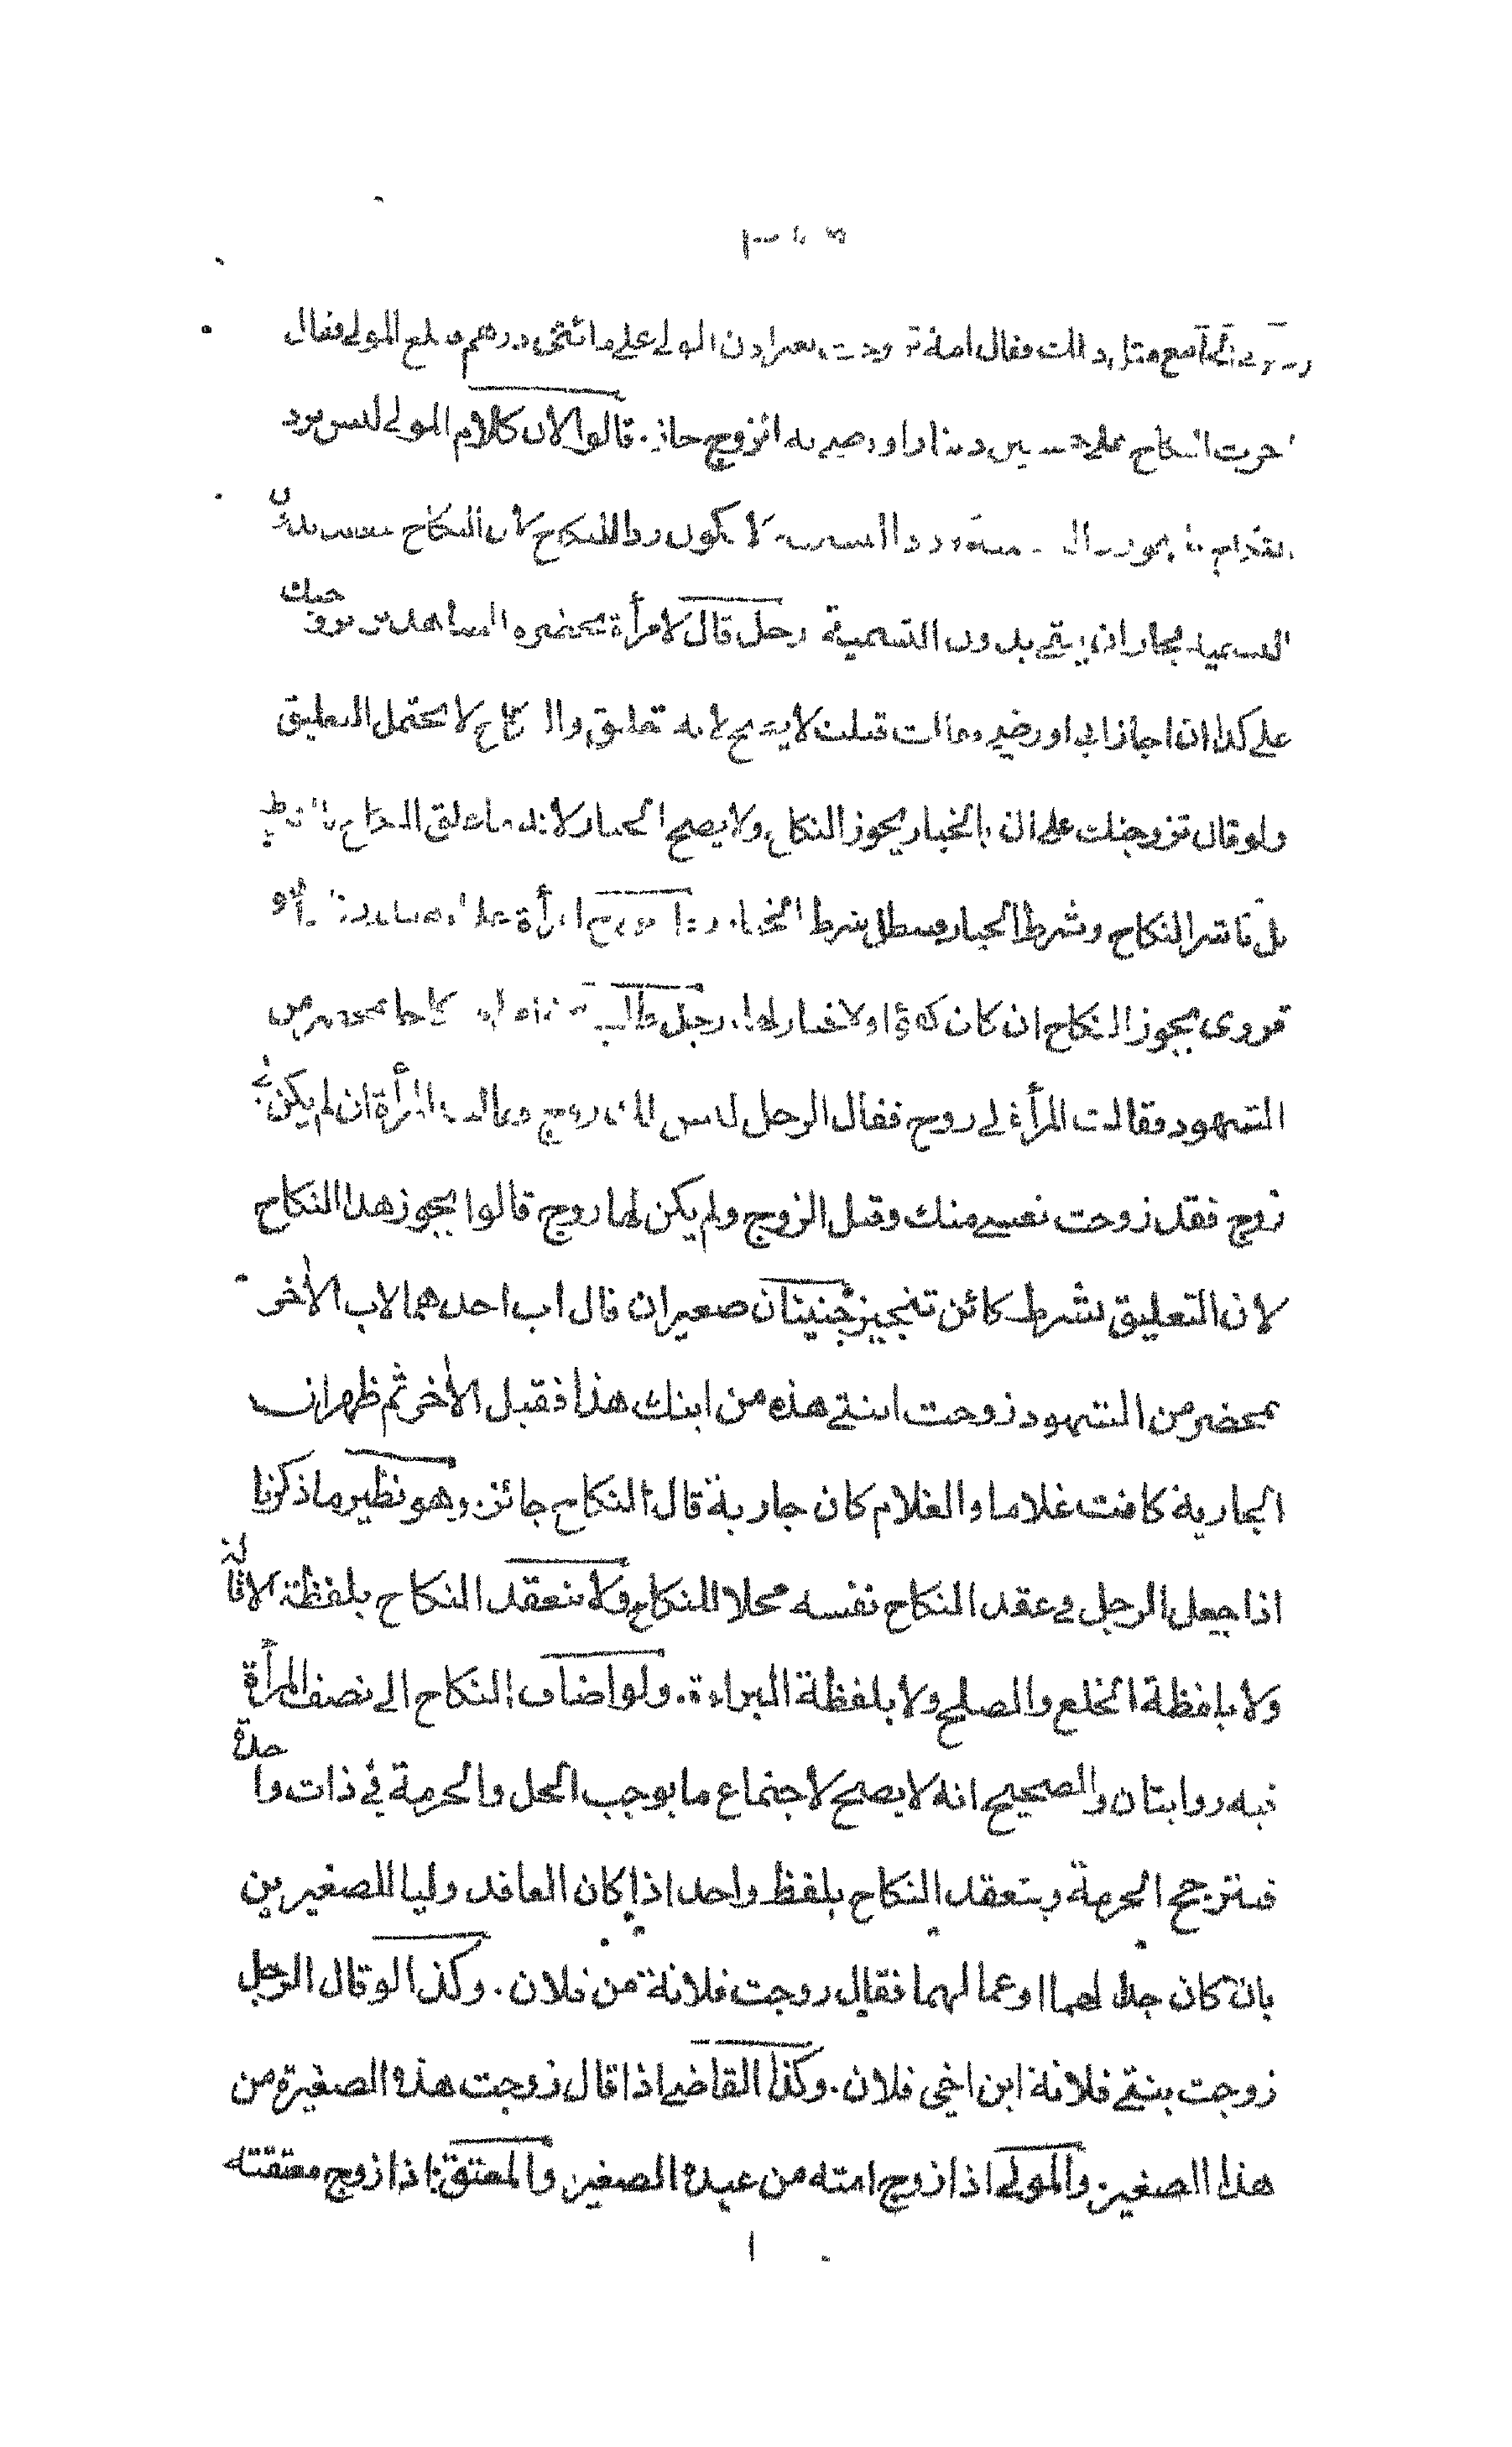 مع مثل ذلك فقال امة تزوجت بغير اذن المولى على مائتى درهم فبلغ المولى فقال
اجزت النكاح على خمسين دينارا ورضى به الزوج جاز. قالوا لان كلام المولى ليس برد
لا يكون ردا للنكاح لان النكاح
التسمية فجاز ان يبقى بدون التسمية رجل قال لامرأة بحضرة الشاهدين تزوجتك
على كذا ان اجاز ابى او رضى فقالت قبلت لا يصح لانه تعليق والنكاح لا يحتمل التعليق
ولو قال تزوجتك على انى بالخيار يجوز النكاح ولا يصح الخيار لانه ما علق النكاح بالشرط
بل باشر النكاح وشرط الخيار فيبطل شرط الخيار. رجل تزوج امرأة على انه
قروى يجوز النكاح ان كان كفؤا ولا خيار لها. رجل طلب نكاحا بمحضر من
الشهود فقالت المرأة لى زوج فقال الرجل ليس لك زوج وقالت المرأة ان لم يكن لى
زوج فقد زوجت نفسى منك وقبل الزوج ولم يكن لها زوج قالوا يجوز هذا النكاح
لان التعليق بشرط كائن تنجيز خنيثان صغيران قال اب احدهما لاب الآخر
بمحضر من الشهود زوجت ابنتى هذه من ابنك هذا فقبل الآخر ثم ظهر ان
الجارية كانت غلاما والغلام كان جارية قال النكاح جائز. وهو نظير ما ذكرنا
اذا جعل الرجل فى عقد النكاح نفسه محلا للنكاح ولا ينعقد النكاح بلفظة الاقالة
ولا بلفظة الخلع والصلح ولا بلفظة البراءة. ولو اضاف النكاح الى نصف المرأة
فيه روايتان والصحيح انه لا يصح لاجتماع ما يوجب الحل والحرمة فى ذات واحدة
فترجح الحرمة وينعقد النكاح بلفظ واحد اذا كان العاقد وليا للصغيرين
بان كان جدا لهما او عما لهما فقال زوجت فلانة من فلان. وكذا لو قال الرجل
زوجت بنتى فلانة ابن اخى فلان. وكذا القاضى اذا قال زوجت هذه الصغيرة من
هذا الصغير. والمولى اذا زوج امته من عبده الصغير والمعتق اذا زوج معتقته